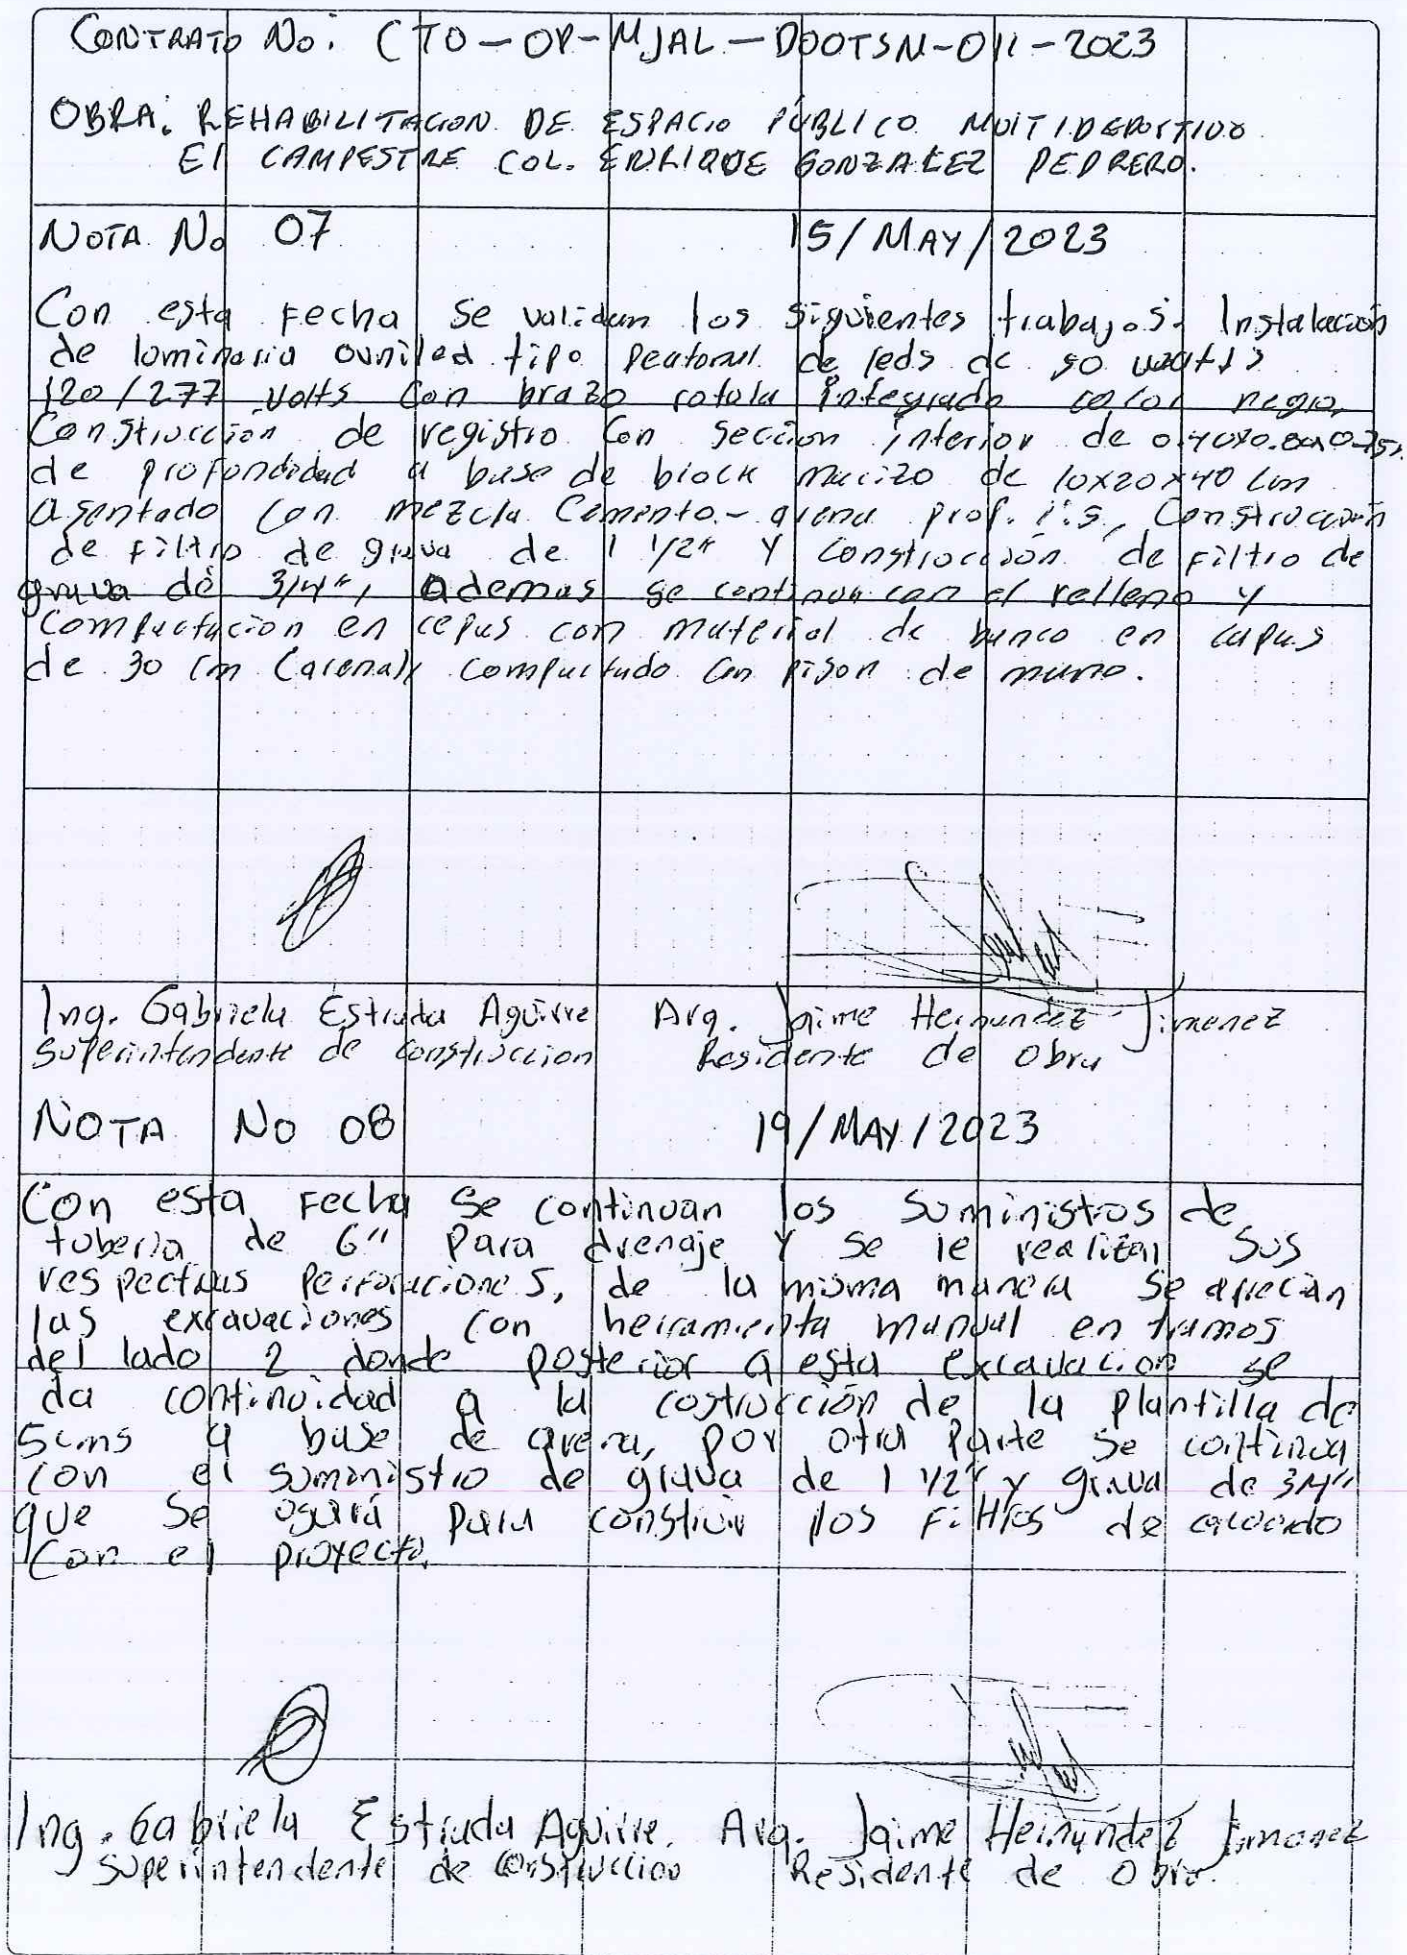 CONTRATO No: CTO-OP-MJAL-DOOTSM-011-2023
OBRA: REHABILITACION DE ESPACIO PÚBLICO MULTIDEPORTIVO
El CAMPESTRE COL. ENRIQUE GONZALEZ PEDRERO.
NOTA No 07 15/MAY/2023
Con esta Fecha se validan los siguientes trabajos: Instalación
de luminaria ovniled tipo Peatonal de leds de 50 watts
120/277 volts con brazo rotula integrado color negro,
Construcción de registro con sección interior de
de profundidad a base de block macizo de 10x20x40 cm
asentado con mezcla cemento-arena prop. 1:5, Construcción
de filtro de grava de 1 1/2" y construcción de filtro de
grava de 3/4", ademas se continua con el relleno y
Compactacion en cepas con material de banco en capas
de 30 cm (arena) compactado con pison de mano.
Ing. Gabriela Estrada Aguirre Arq. Jaime Hernandez Jimenez
Superintendente de construccion Residente de Obra
NOTA No 08 19/MAY/2023
Con esta Fecha se continuan los suministros de
tuberia de 6" para drenaje y se le realizan sus
respectivas perforaciones, de la misma manera se aprecian
las excavaciones con herramienta manual en tramos
del lado 2 donde posterior a esta excavacion se
da continuidad a la costrucción de la plantilla de
5cms a base de arena, por otra parte se continua
con el suministro de grava de 1 1/2" y grava de 3/4"
que se usará para construir los filtros de acuerdo
con el proyecto.
Ing. Gabriela Estrada Aguirre. Arq. Jaime Hernández Jimenez
Superintendente de Construccion Residente de Obra.